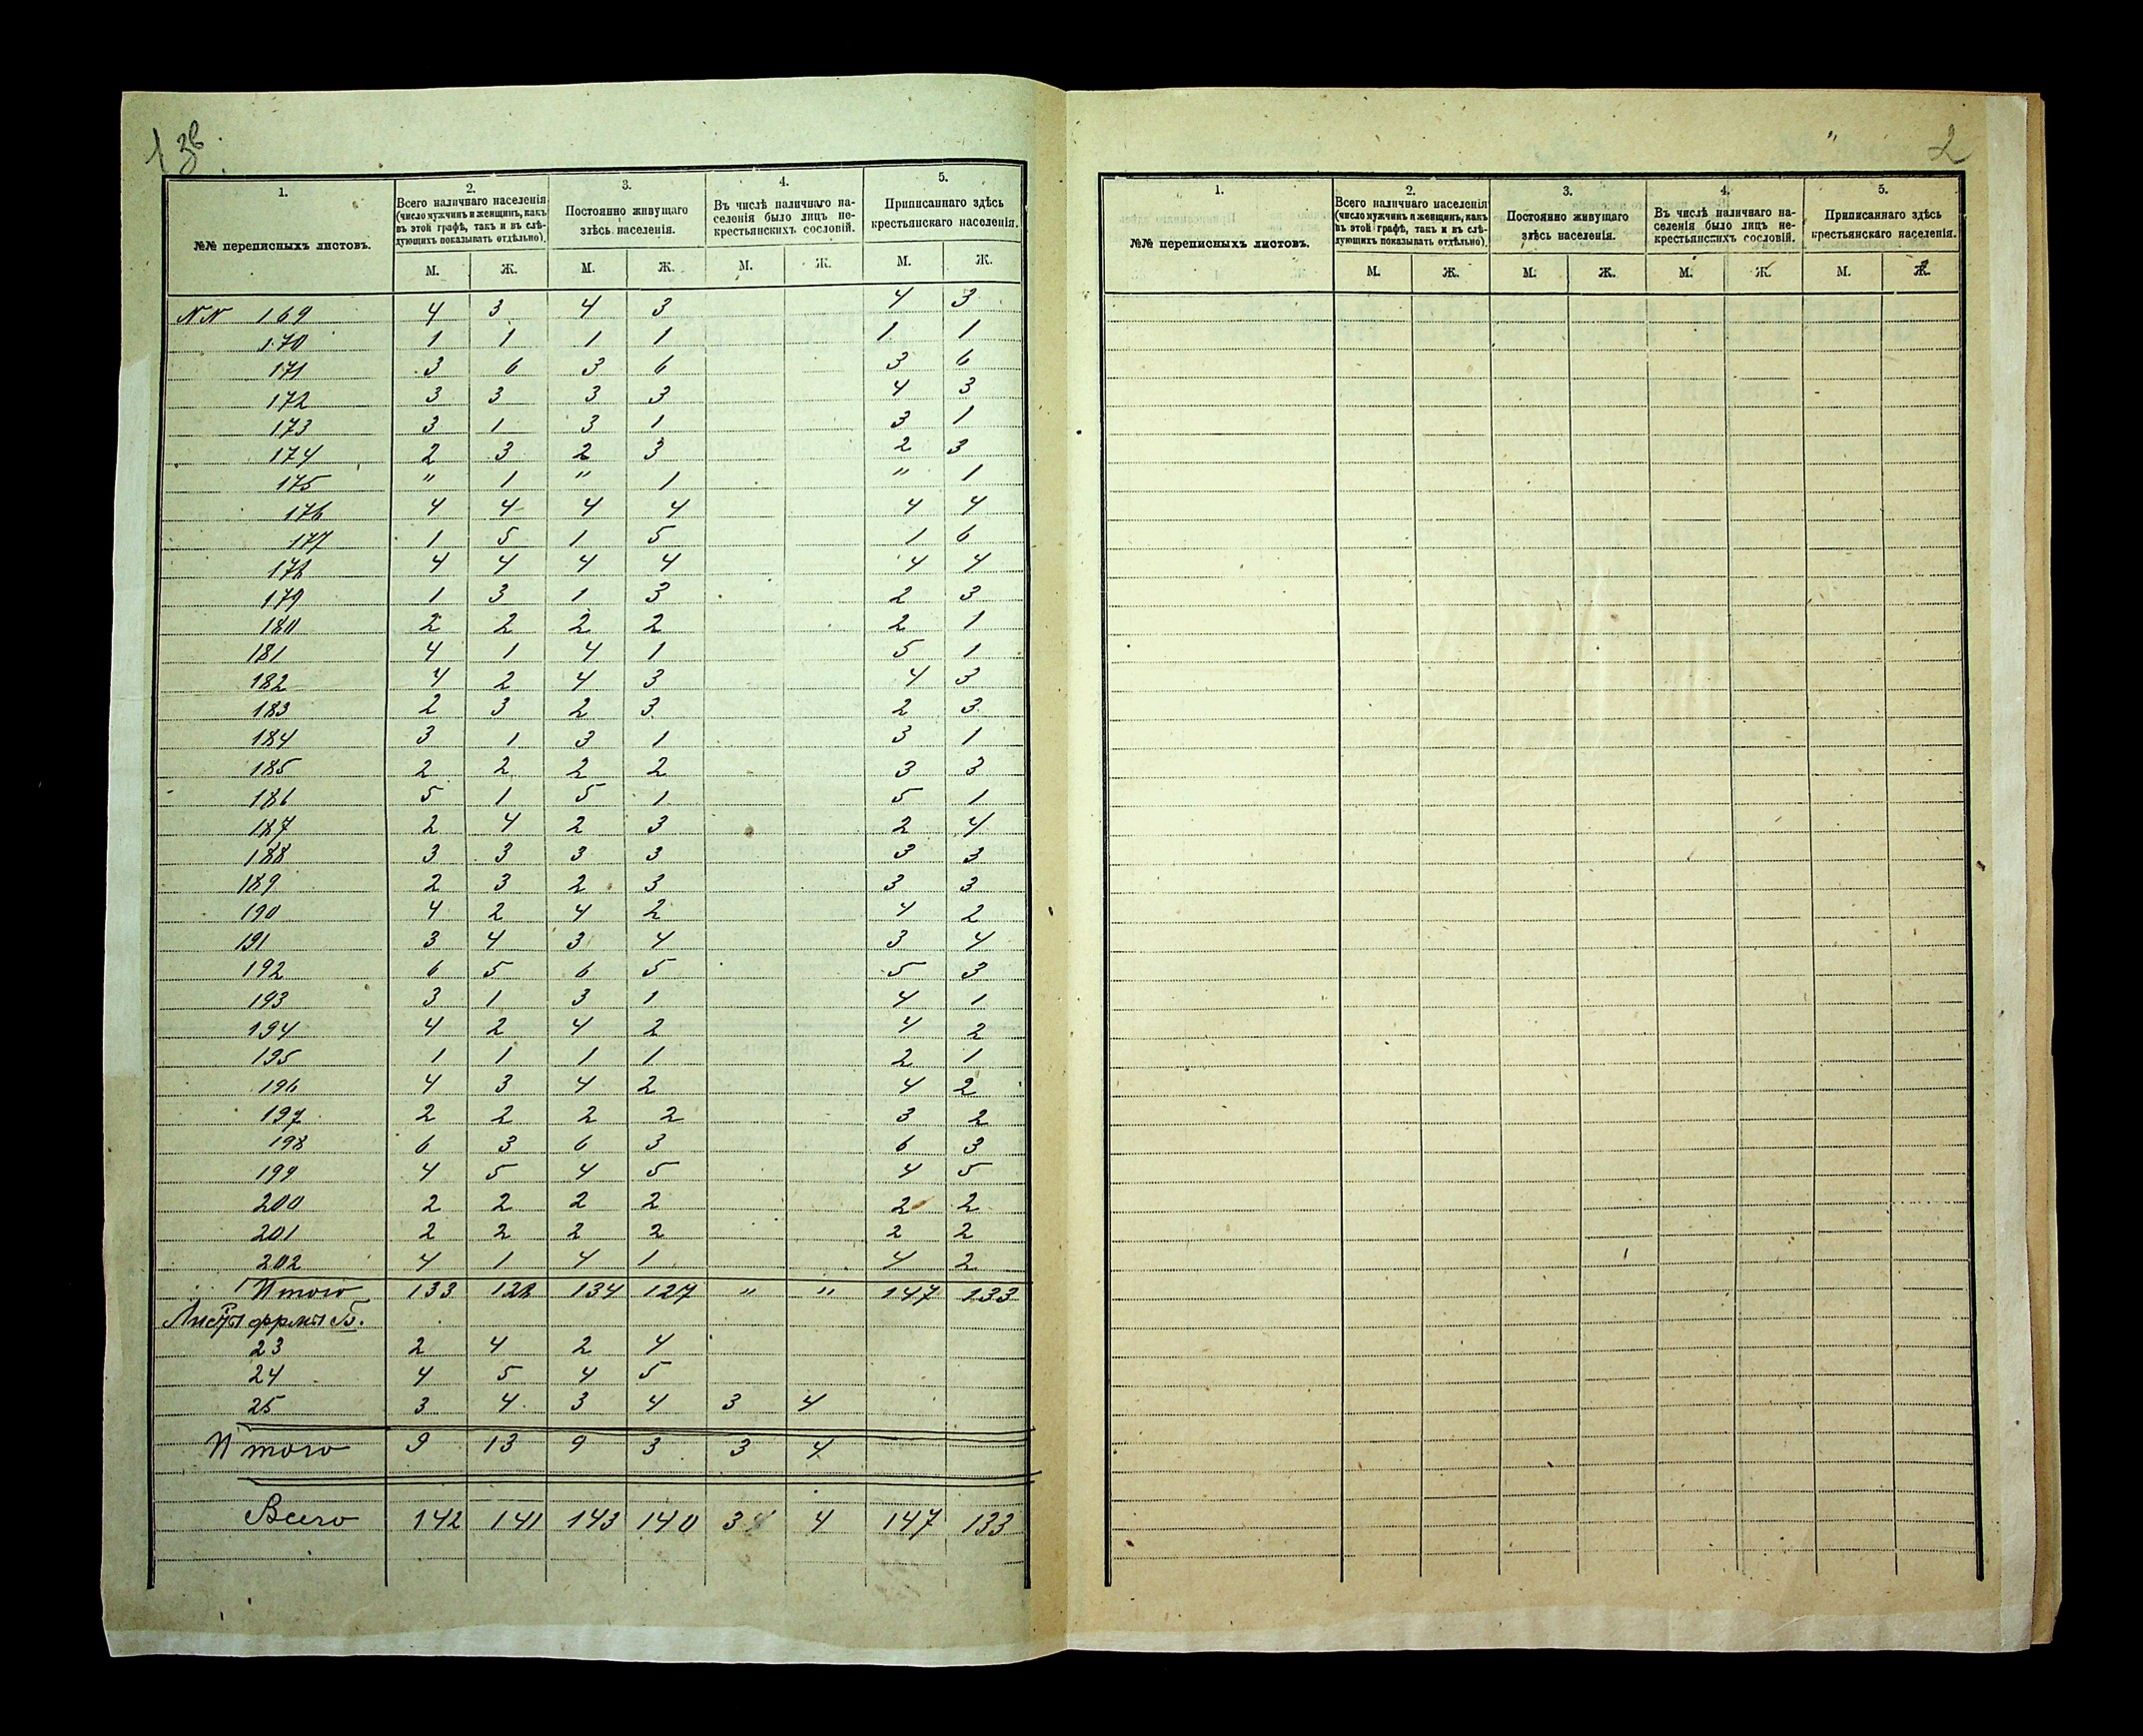 1 зв.
1. 2. 3. 4. 5.
№№ переписныхъ листовъ. Всего наличнаго населенія (число мужчинъ и женщинъ, какъ въ этой графѣ, такъ и въ слѣдующихъ показывать отдѣльно). Постоянно живущаго здѣсь населенія. Въ числѣ наличнаго населенія было лицъ не-крестьянскихъ сословій. Приписаннаго здѣсь крестьянскаго населенія.
М. Ж. М. Ж. М. Ж. М. Ж.
NN 169 4 3 4 3 4 3
170 1 1 1 1 1 1
171 3 6 3 6 3 6
172 3 3 3 3 4 3
173 3 1 3 1 3 1
174 2 3 2 3 2 3
175 " 1 " 1 " 1
176 4 4 4 4 4 4
177 1 5 1 5 1 6
178 4 4 4 4 4 4
179 1 3 1 3 2 3
180 2 2 2 2 2 1
181 4 1 4 1 5 1
182 4 2 4 3 4 3
183 2 3 2 3 2 3
184 3 1 3 1 3 1
185 2 2 2 2 3 3
186 5 1 5 1 5 1
187 2 4 2 3 2 4
188 3 3 3 3 3 3
189 2 3 2 3 3 3
190 4 2 4 2 4 2
191 3 4 3 4 3 4
192 6 5 6 5 5 3
193 3 1 3 1 4 1
194 4 2 4 2 4 2
195 1 1 1 1 2 1
196 4 3 4 2 4 2
197 2 2 2 2 3 2
198 6 3 6 3 6 3
199 4 5 4 5 4 5
200 2 2 2 2 2 2
201 2 2 2 2 2 2
202 4 1 4 1 4 2
Итого 133 128 134 127 " " 147 133
Листы формы Б.
23 2 4 2 4
24 4 5 4 5
25 3 4 3 4 3 4
Итого 9 13 9 3 3 4
Всего 142 141 143 140 3 4 147 133
" 2
1. 2. 3. 4. 5.
№№ переписныхъ листовъ. Всего наличнаго населенія (число мужчинъ и женщинъ, какъ въ этой графѣ, такъ и въ слѣдующихъ показывать отдѣльно). Постоянно живущаго здѣсь населенія. Въ числѣ наличнаго населенія было лицъ не-крестьянскихъ сословій. Приписаннаго здѣсь крестьянскаго населенія.
М. Ж. М. Ж. М. Ж. М. Ж.